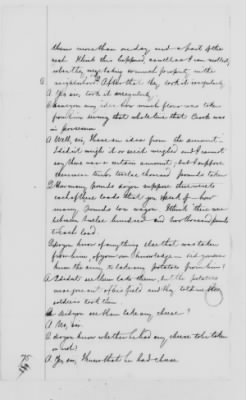 them more than one day and a part of the
next. I think this happened, as well as I can recollect,
when they were taking so much property in the
neighborhood. After that they took it irregularly.
A. Yes sir, took it irregularly.
Q. Have you any idea how much flour was taken
from him during that whole time that Crook was
in possession
A. Well, sir, I have an idea from the amount
I did not weigh it or see it weighed and I cannot
say there was a certain amount, but I suppose
there were ten or twelve thousand pounds taken
Q. How many pounds do you suppose there were to
each of these loads that you speak of how
many pounds to a wagon. I think there were
between twelve hundred and two thousand pounds
to each load.
Q. Do you know of anything else that was taken
from him, of your own knowledge did you ever
know the army to take any potatoes from him?
A. I did not see them take them, but the potatoes
were gone out of his field and they told me the
soldiers took them.
Q. Did you see them take any cheese?
A. No, sir.
Q. Do you know whether he had any cheese to be taken
or not?
A. Yes sir, I know that he had cheese